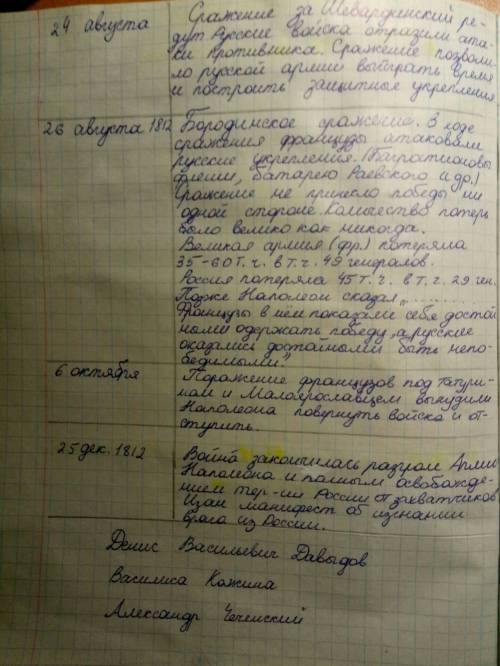 24 августа
Сражение за Шевардинский ре-
дут Русские войска отразили ата-
ки противника. Сражение позволи-
ло русской армии выиграть время
и построить защитные укрепления
26 августа 1812
Бородинское сражение. В ходе
сражения французы атаковали
русские укрепления. (Багратионовы
флеши, батарею Раевского и др.)
Сражение не принесло победы ни
одной стороне. Количество потерь
было велико как никогда.
Великая армия (фр.) потеряла
35-60 т.ч. в т.ч. 49 генералов.
Россия потеряла 45 т.ч. в т.ч. 29 ген.
Позже Наполеон сказал „........
Французы в нём показали себя достой
ными одержать победу, а русские
оказались достойными быть непо-
бедимыми."
6 октября
Поражение французов под Тарути-
ном и Малоярославцем вынудили
Наполеона повернуть войска и от-
ступить.
25 дек. 1812
Война закончилась разгром Армии
Наполеона и полным освобожде-
нием тер-ии России от захватчиков
Издан манифест об изгнании
врага из России.
Денис Васильевич Давыдов
Василиса Кожина
Александр Чеченский